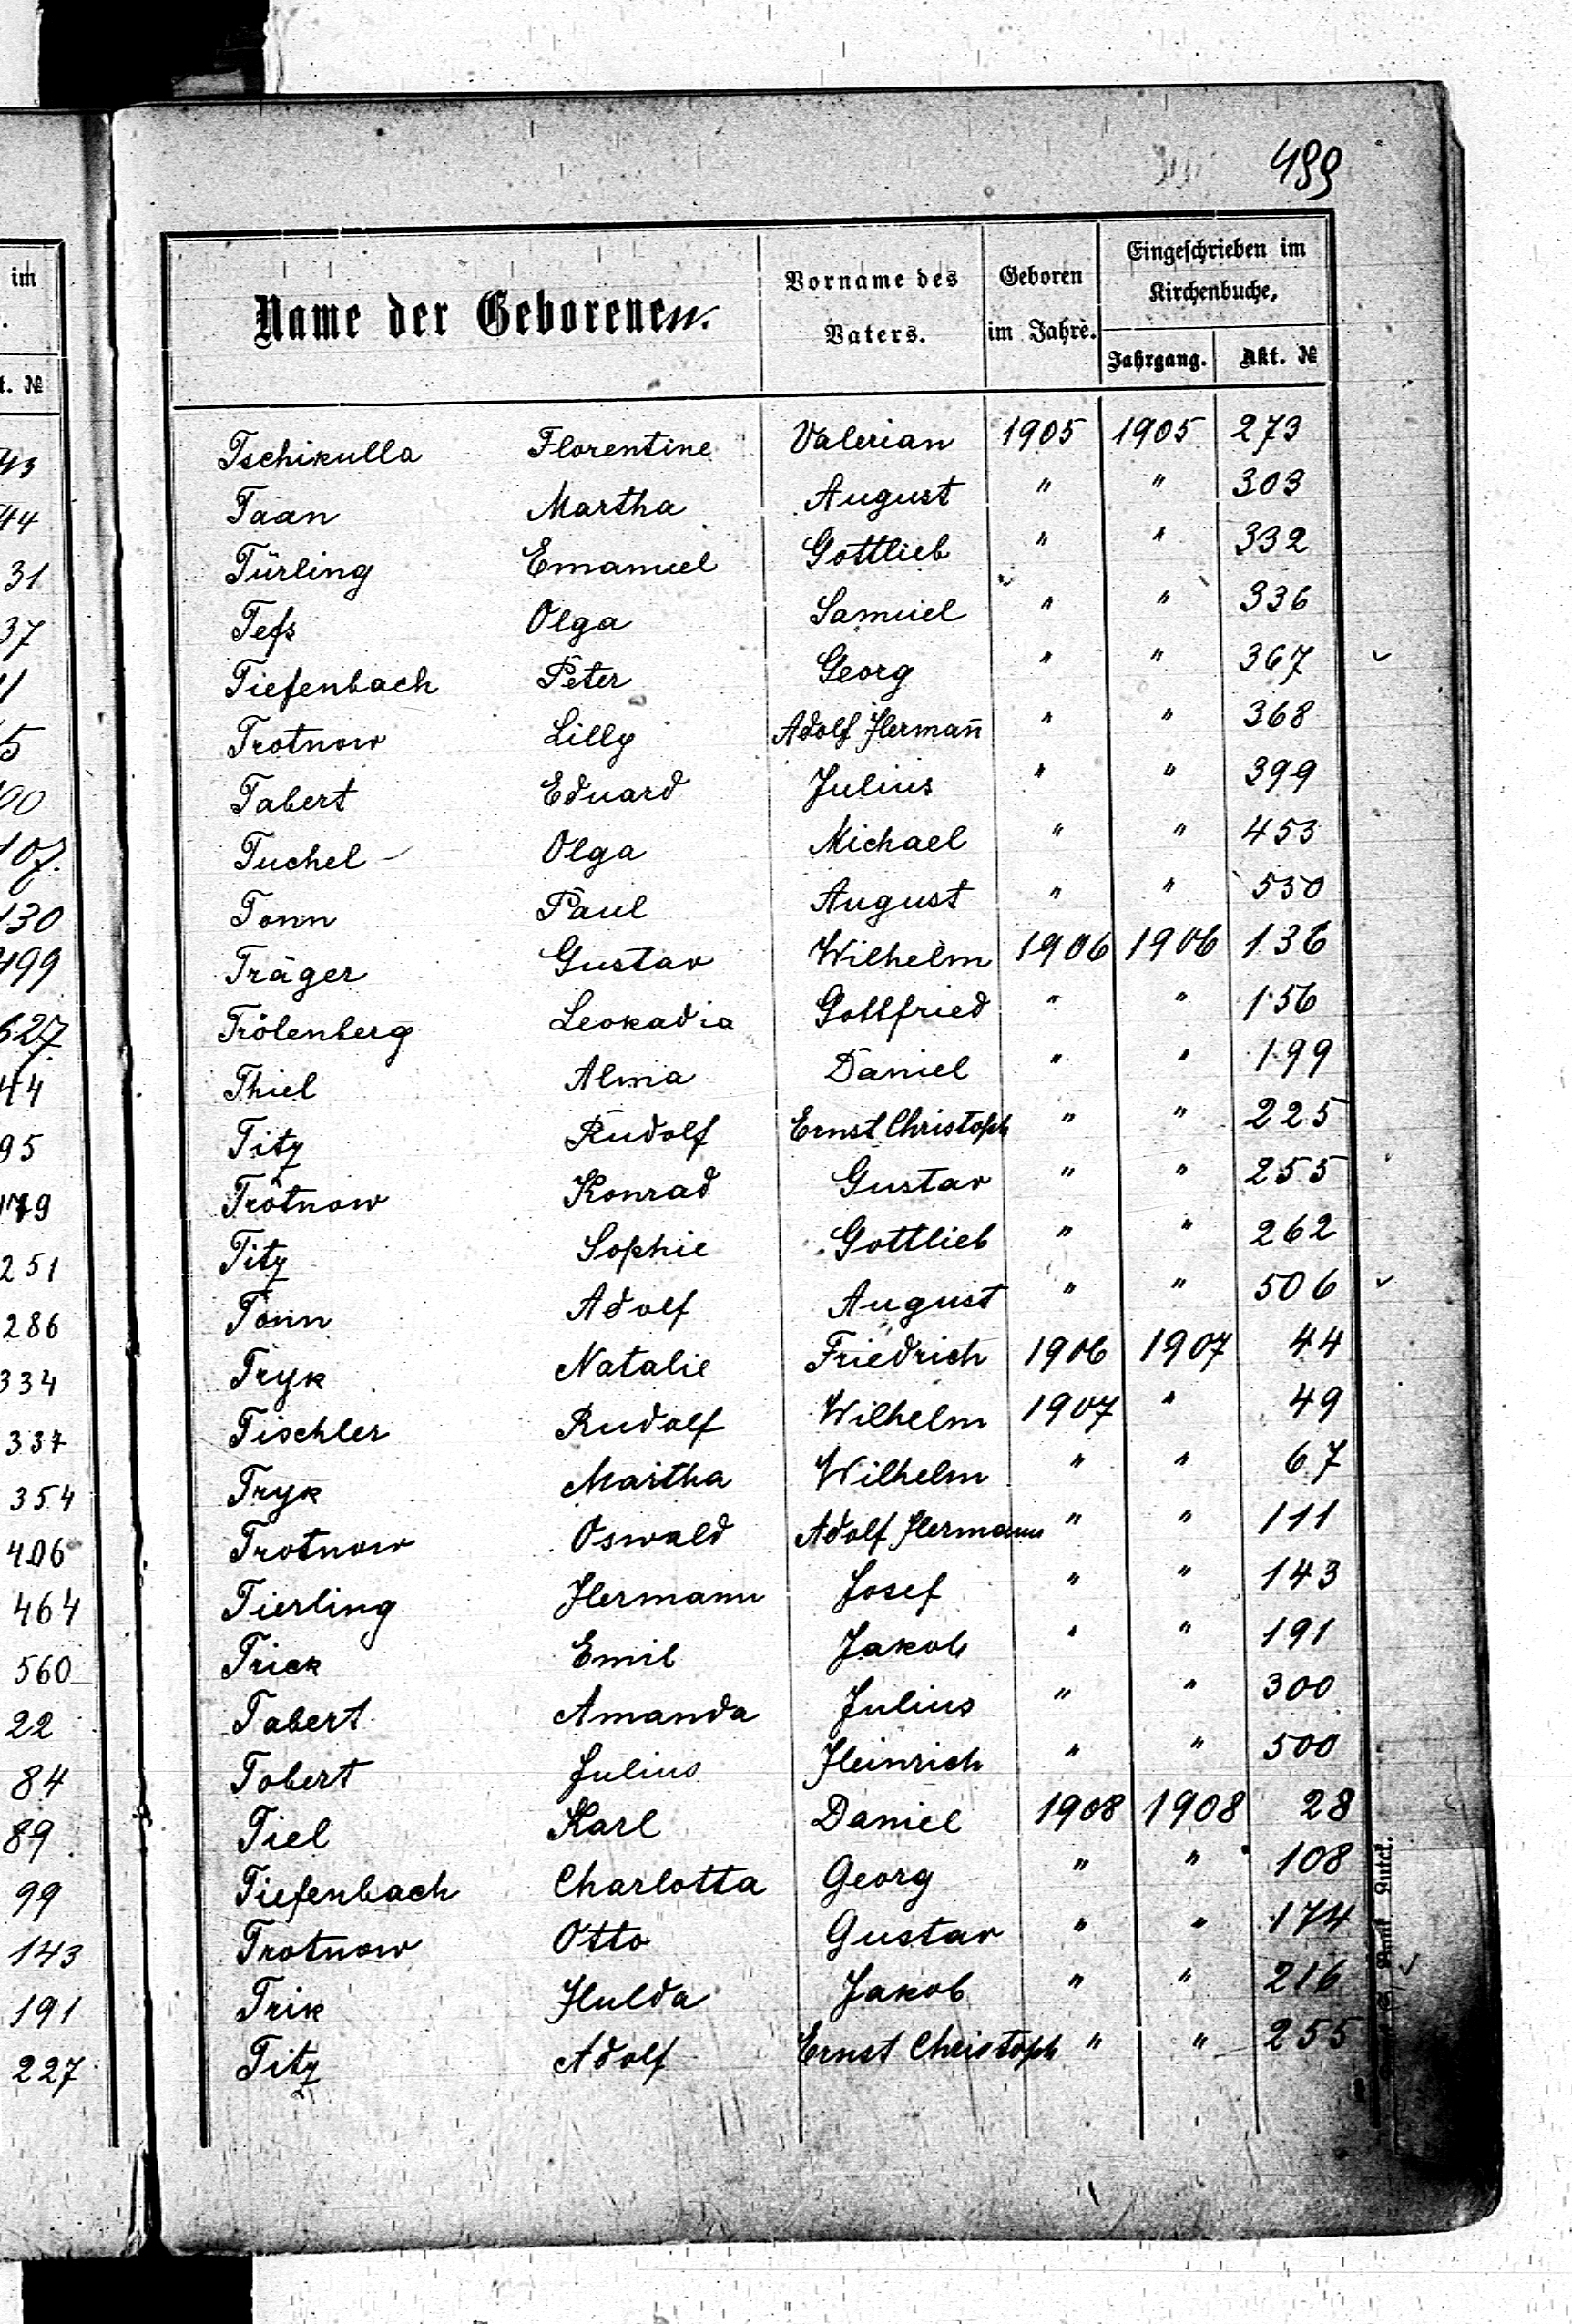 499
im
t. №
43
44
31
37
11
5
00
107.
130
499
627
44
95
179
251
286
334
337
354
406
464
560
22
84
89
99
143
191
227
Name der Geborenen. Vorname des Vaters. Geboren im Jahre. Eingeschrieben im Kirchenbuche,
Jahrgang. Akt. №
Tschikulla Florentine Valerian 1905 1905 273
Taan Martha August " " 303
Türling Emanuel Gottlieb " " 332
Tefs Olga Samuel " " 336
Tiefenbach Peter Georg " " 367 ✓
Trotnow Lilly Adolf Herman̄ " " 368
Tabert Eduard Julius " " 399
Tuchel Olga Michael " " 453
Tonn Paul August " " 550
Träger Gustav Wilhelm 1906 1906 136
Trölenberg Leokadia Gottfried " " 156
Thiel Alma Daniel " " 199
Titz Rudolf Ernst Christoph " " 225
Trotnow Konrad Gustav " " 255
Titz Sophie Gottlieb " " 262
Tonn Adolf August " " 506 ✓
Tryk Natalie Friedrich 1906 1907 44
Tischler Rudolf Wilhelm 1907 " 49
Tryk Martha Wilhelm " " 67
Trotnow Oswald Adolf Hermann " " 111
Tierling Hermann Josef " " 143
Trick Emil Jakob " " 191
Tabert Amanda Julius " " 300
Tobert Julius Heinrich " " 500
Tiel Karl Daniel 1908 1908 28
Tiefenbach Charlotta Georg " " 108
Trotnow Otto Gustav " " 174
Trik Hulda Jakob " " 216 ✓
Titz Adolf Ernst Christoph " " 255